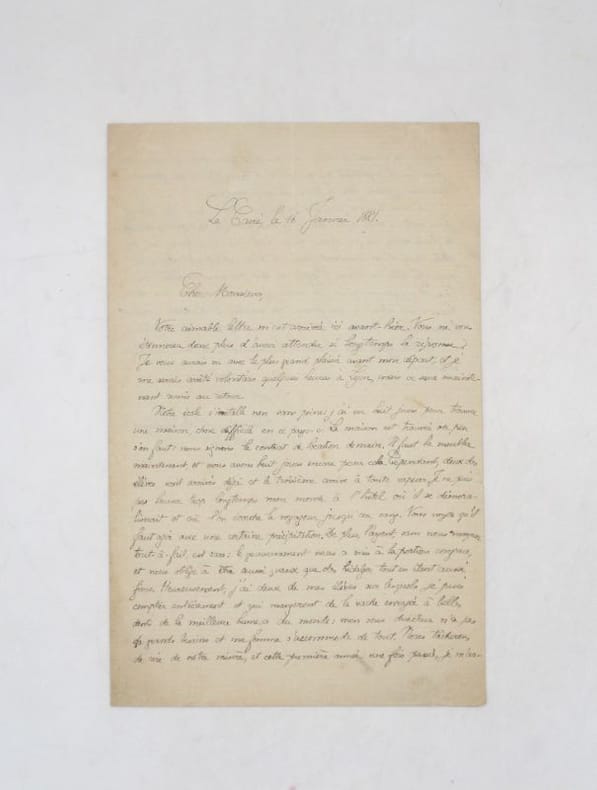 Le Caire, le 16 Janvier 1881.
Cher Monsieur,
Votre aimable lettre m'est arrivée ici avant-hier. Vous ne vous
étonnerez donc plus d'avoir attendu si longtemps la réponse.
Je vous aurais vu avec le plus grand plaisir avant mon départ, et je
me serais arrêté volontiers quelques heures à Lyon, mais ce sera mainte-
nant au retour.
Notre école s'installe non sans peine; j'ai eu huit jours pour trouver
une maison, chose difficile en ce pays-ci. La maison est trouvée ou peu
s'en faut: nous signons le contrat de location demain. Il faut la meubler
maintenant, et nous avons huit jours encore pour cela. Cependant, deux des
élèves sont arrivés déjà et le troisième arrive à toute vapeur. Je ne puis
pas laisser trop longtemps mon monde à l'hôtel où il se démora-
liserait et où l'on écorche le voyageur jusqu'au sang. Vous voyez qu'il
faut agir avec une certaine précipitation. De plus, l'argent, sans nous manquer
tout-à-fait, est rare: le gouvernement nous a mis à la portion congrue,
et nous oblige à être aussi gueux que des hidalgos tout en étant aussi
fiers. Heureusement, j'ai deux de mes élèves sur lesquels je puis
compter entièrement et qui mangeront de la vache enragée à belles
dents de la meilleure humeur du monde: mon sous-directeur n'a pas
de grands besoins et ma femme s'accommode de tout. Nous tâcherons
de rire de notre misère, et cette première année une fois passée, je m'as-